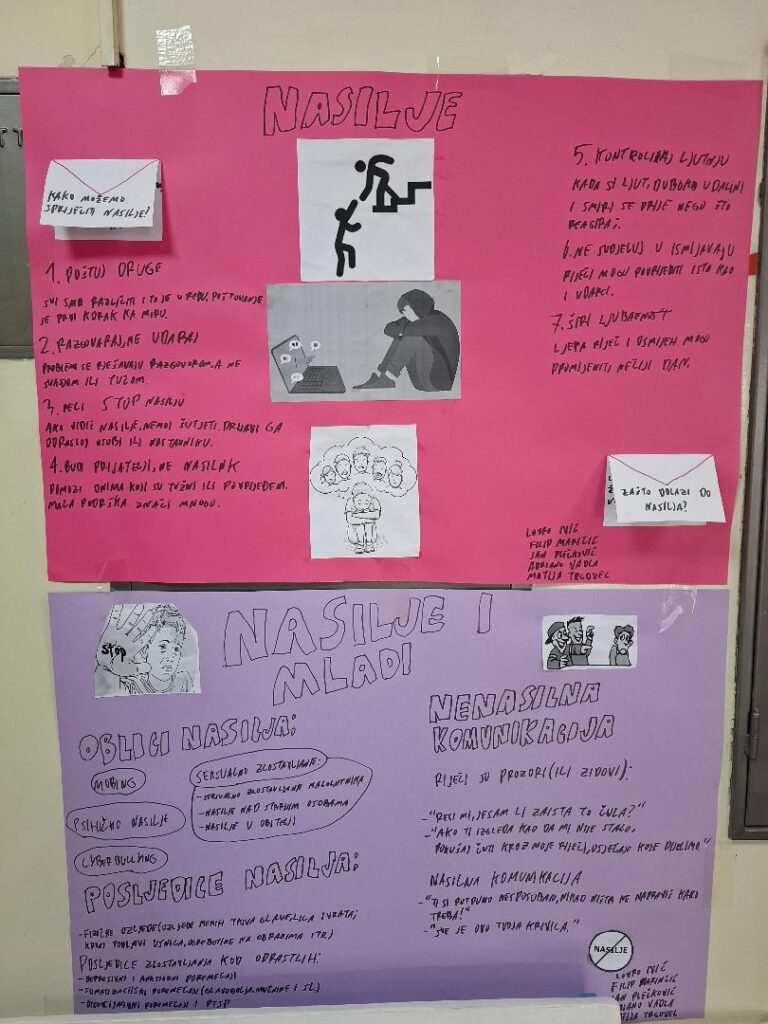 NASILJE
KAKO MOŽEMO
SPRIJEČITI NASILJE?
1. POŠTUJ DRUGE
SVI SMO RAZLIČITI I TO JE U REDU. POŠTOVANJE
JE PRVI KORAK KA MIRU.
2. RAZGOVARAJ, NE UDARAJ
PROBLEMI SE RJEŠAVAJU RAZGOVOROM, A NE
SVAĐOM ILI TUČOM.
3. RECI STOP NASILJU
AKO VIDIŠ NASILJE, NEMOJ ŠUTJETI. PRIJAVI GA
ODRASLOJ OSOBI ILI NASTAVNIKU.
4. BUDI PRIJATELJ, NE NASILNIK
POMOZI ONIMA KOJI SU TUŽNI ILI POVRIJEĐENI.
MALA PODRŠKA ZNAČI MNOGO.
5. KONTROLIRAJ LJUTNJU
KADA SI LJUT, DUBOKO UDAHNI
I SMIRI SE PRIJE NEGO ŠTO
REAGIRAŠ.
6. NE SUDJELUJ U ISMIJAVANJU
RIJEČI MOGU POVRIJEDITI ISTO KAO
I UDARCI.
7. ŠIRI LJUBAZNOST
LIJEPA RIJEČ I OSMIJEH MOGU
PROMIJENITI NEČIJI DAN.
ZAŠTO DOLAZI DO
NASILJA?
LOVRO
FILIP
JAN PLEČKOVIĆ
ADRIANO VADLA
MATIJA TRGOVEC
STOP
NASILJE I
MLADI
OBLICI NASILJA:
MOBING
PSIHIČKO NASILJE
CYBERBULLYING
SEKSUALNO ZLOSTAVLJANJE:
-SEKSUALNO ZLOSTAVLJANJE MALOLJETNIKA
-NASILJE NAD STARIJIM OSOBAMA
-NASILJE U OBITELJI
POSLJEDICE NASILJA:
-FIZIČKE OZLJEDE (OZLJEDE MEKIH TKIVA GLAVE, LICA I VRATA;
KRVNI PODLJEVI USNICA, OGREBOTINE NA OBRAZIMA ITD)
POSLJEDICE ZLOSTAVLJANJA KOD ODRASLIH:
-DEPRESIVNI I ANKSIOZNI POREMEĆAJI
-SOMATIZACIJSKI POREMEĆAJI (GLAVOBOLJA, MUČNINE I SL)
-DISOCIJATIVNI POREMEĆAJI I PTSP
NENASILNA
KOMUNIKACIJA
RIJEČI SU PROZORI (ILI ZIDOVI):
-"RECI MI, JESAM LI ZAISTA TO ČULA?"
-"AKO TI IZGLEDA KAO DA MI NIJE STALO,
POKUŠAJ ČUTI KROZ MOJE RIJEČI, OSJEĆAJE KOJE DIJELIMO"
NASILNA KOMUNIKACIJA
-"TI SI POTPUNO NESPOSOBAN, NIKAD NIŠTA NE NAPRAVIŠ KAKO
TREBA!"
-"SVE JE OVO TVOJA KRIVICA."
NASILJE
LOVRO
FILIP
JAN PLEČKOVIĆ
VADLA
TRGOVEC